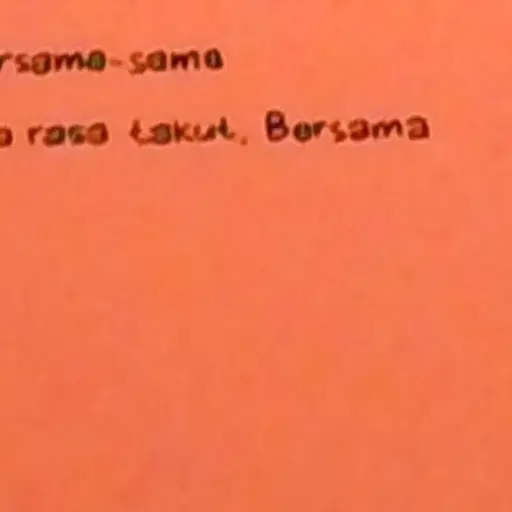 rsama-sama
a rasa takut. Bersama